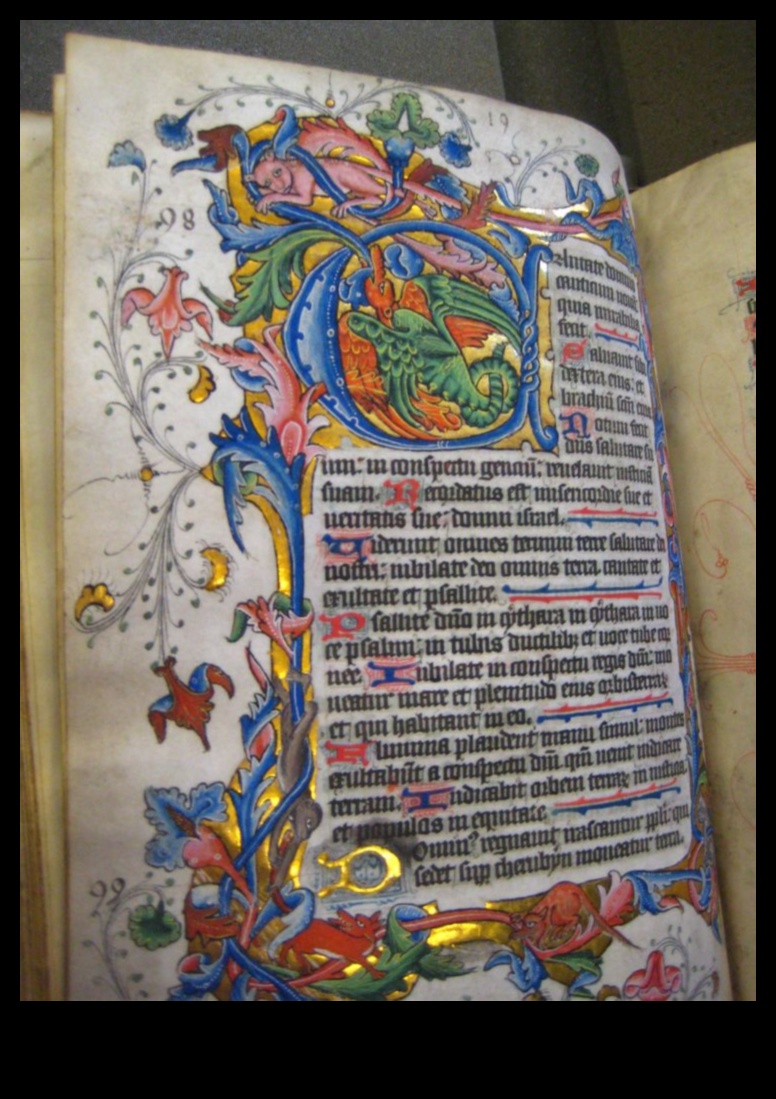 19
98
antate domino
canticum nouū
quia mirabilia
fecit.
Saluauit sibi
dextera eius: et
brachiū scm eius
Notum fecit
dns salutare su
um: in conspectu genciū: reuelauit iusticiā
suam. Recordatus est misericordie sue et
ueritatis sue: domui israel.
Uiderunt omnes termini terre salutare di
nostri: iubilate deo omnis terra cantate et
exultate et psallite.
Psallite dno in cythara in cythara in uo
ce psalmi: in tubis ductilibꝫ et uoce tube cor
nee. Iubilate in conspectu regis dni: mo
ueatur mare et plenitudo eius orbis terraꝝ
et qui habitant in eo.
Flumina plaudent manu simul: montes
exultabūt a conspectu dni qm uenit iudicare
terram. Iudicabit orbem terraꝝ in iusticia
et populos in equitate.
99
Dominꝰ regnauit irascantur ppli: qui
sedet sup cherubyn moueatur terra.